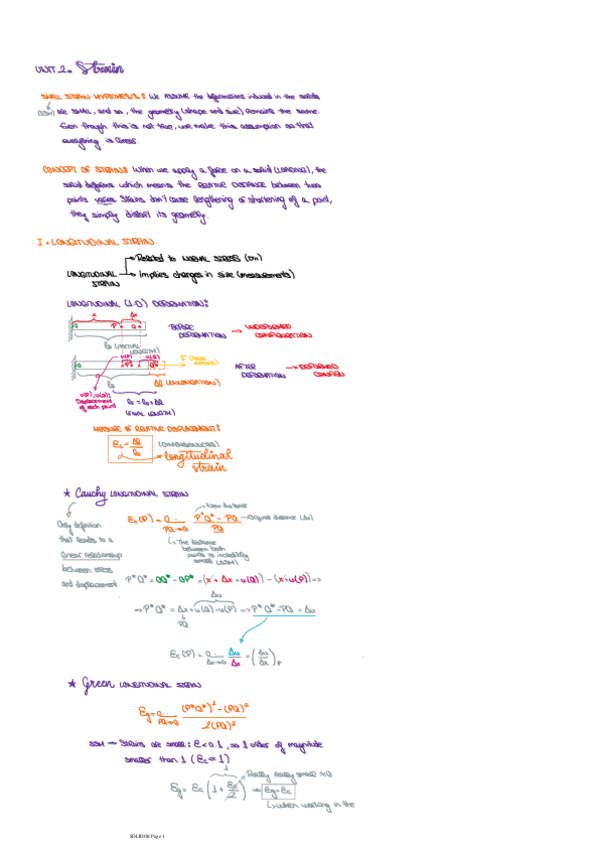 UNIT 2. Strain
SMALL STRAIN HYPOTHESIS: We ASSUME the deformations induced in the solids
(SSH) are SMALL, and so, the geometry (shape and size) remains the same.
Even though this is not true, we make this assumption so that
everything is linear.
CONCEPT OF STRAIN: When we apply a force on a solid (LOADING), the
solid deforms which means the RELATIVE DISTANCE between two
points varies. Strains don't cause lengthening or shortening of a point,
they simply distort its geometry.
I. LONGITUDINAL STRAIN
→ Related to NORMAL STRESS (σn)
LONGITUDINAL STRAIN → Implies changes in size (measurements)
LONGITUDINAL (1-D) DEFORMATION:
x Δx
O P Q
BEFORE DEFORMATION → UNDEFORMED CONFIGURATION
l₀ (INITIAL LENGTH)
u(P) u(Q)
O P* Q*
F
AFTER DEFORMATION → DEFORMED
l₀ Δl (ELONGATION)
u(P), u(Q): Displacement of each point
lf = l₀ + Δl
(FINAL LENGTH)
MEASURE OF RELATIVE DISPLACEMENT:
εL = Δl / l₀ (DIMENSIONLESS)
→ longitudinal strain
★ Cauchy LONGITUDINAL STRAIN
New distance
Only definition
that leads to a
linear relationship
between stress
and displacement
Original distance (Δx)
The distance between both points is incredibly small (SSH)
P*Q* = OQ* - OP* = (x + Δx + u(Q)) - (x + u(P)) =>
Δu
=> P*Q* = Δx + u(Q) - u(P) => P*Q* - PQ = Δu
PQ
εc(P) = lim Δx→0 Δu/Δx = (Δu/Δx)P
★ Green LONGITUDINAL STRAIN
εg = lim PQ→0 ((P*Q*)² - (PQ)²) / 2(PQ)²
SSH → Strains are small: ε < 0.1, so 1 order of magnitude
smaller than 1 (εc << 1)
Really really small ≈ 0
εg = εc (1 + εc/2) => εg = εc
↳ when working in the
SÓLIDOS Page 1